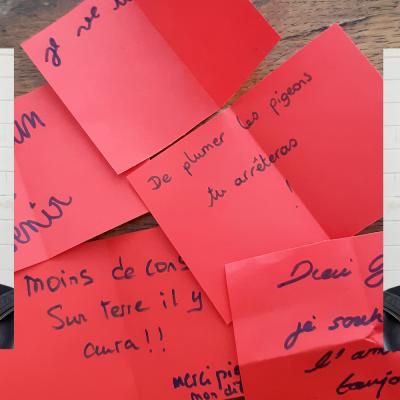 je ve
De plumer les pigeons
tu arrêteras
!
enir
moins de cons
Sur Terre il y
aura!!
merci pie
mon dit
je souh
l'am
toujo